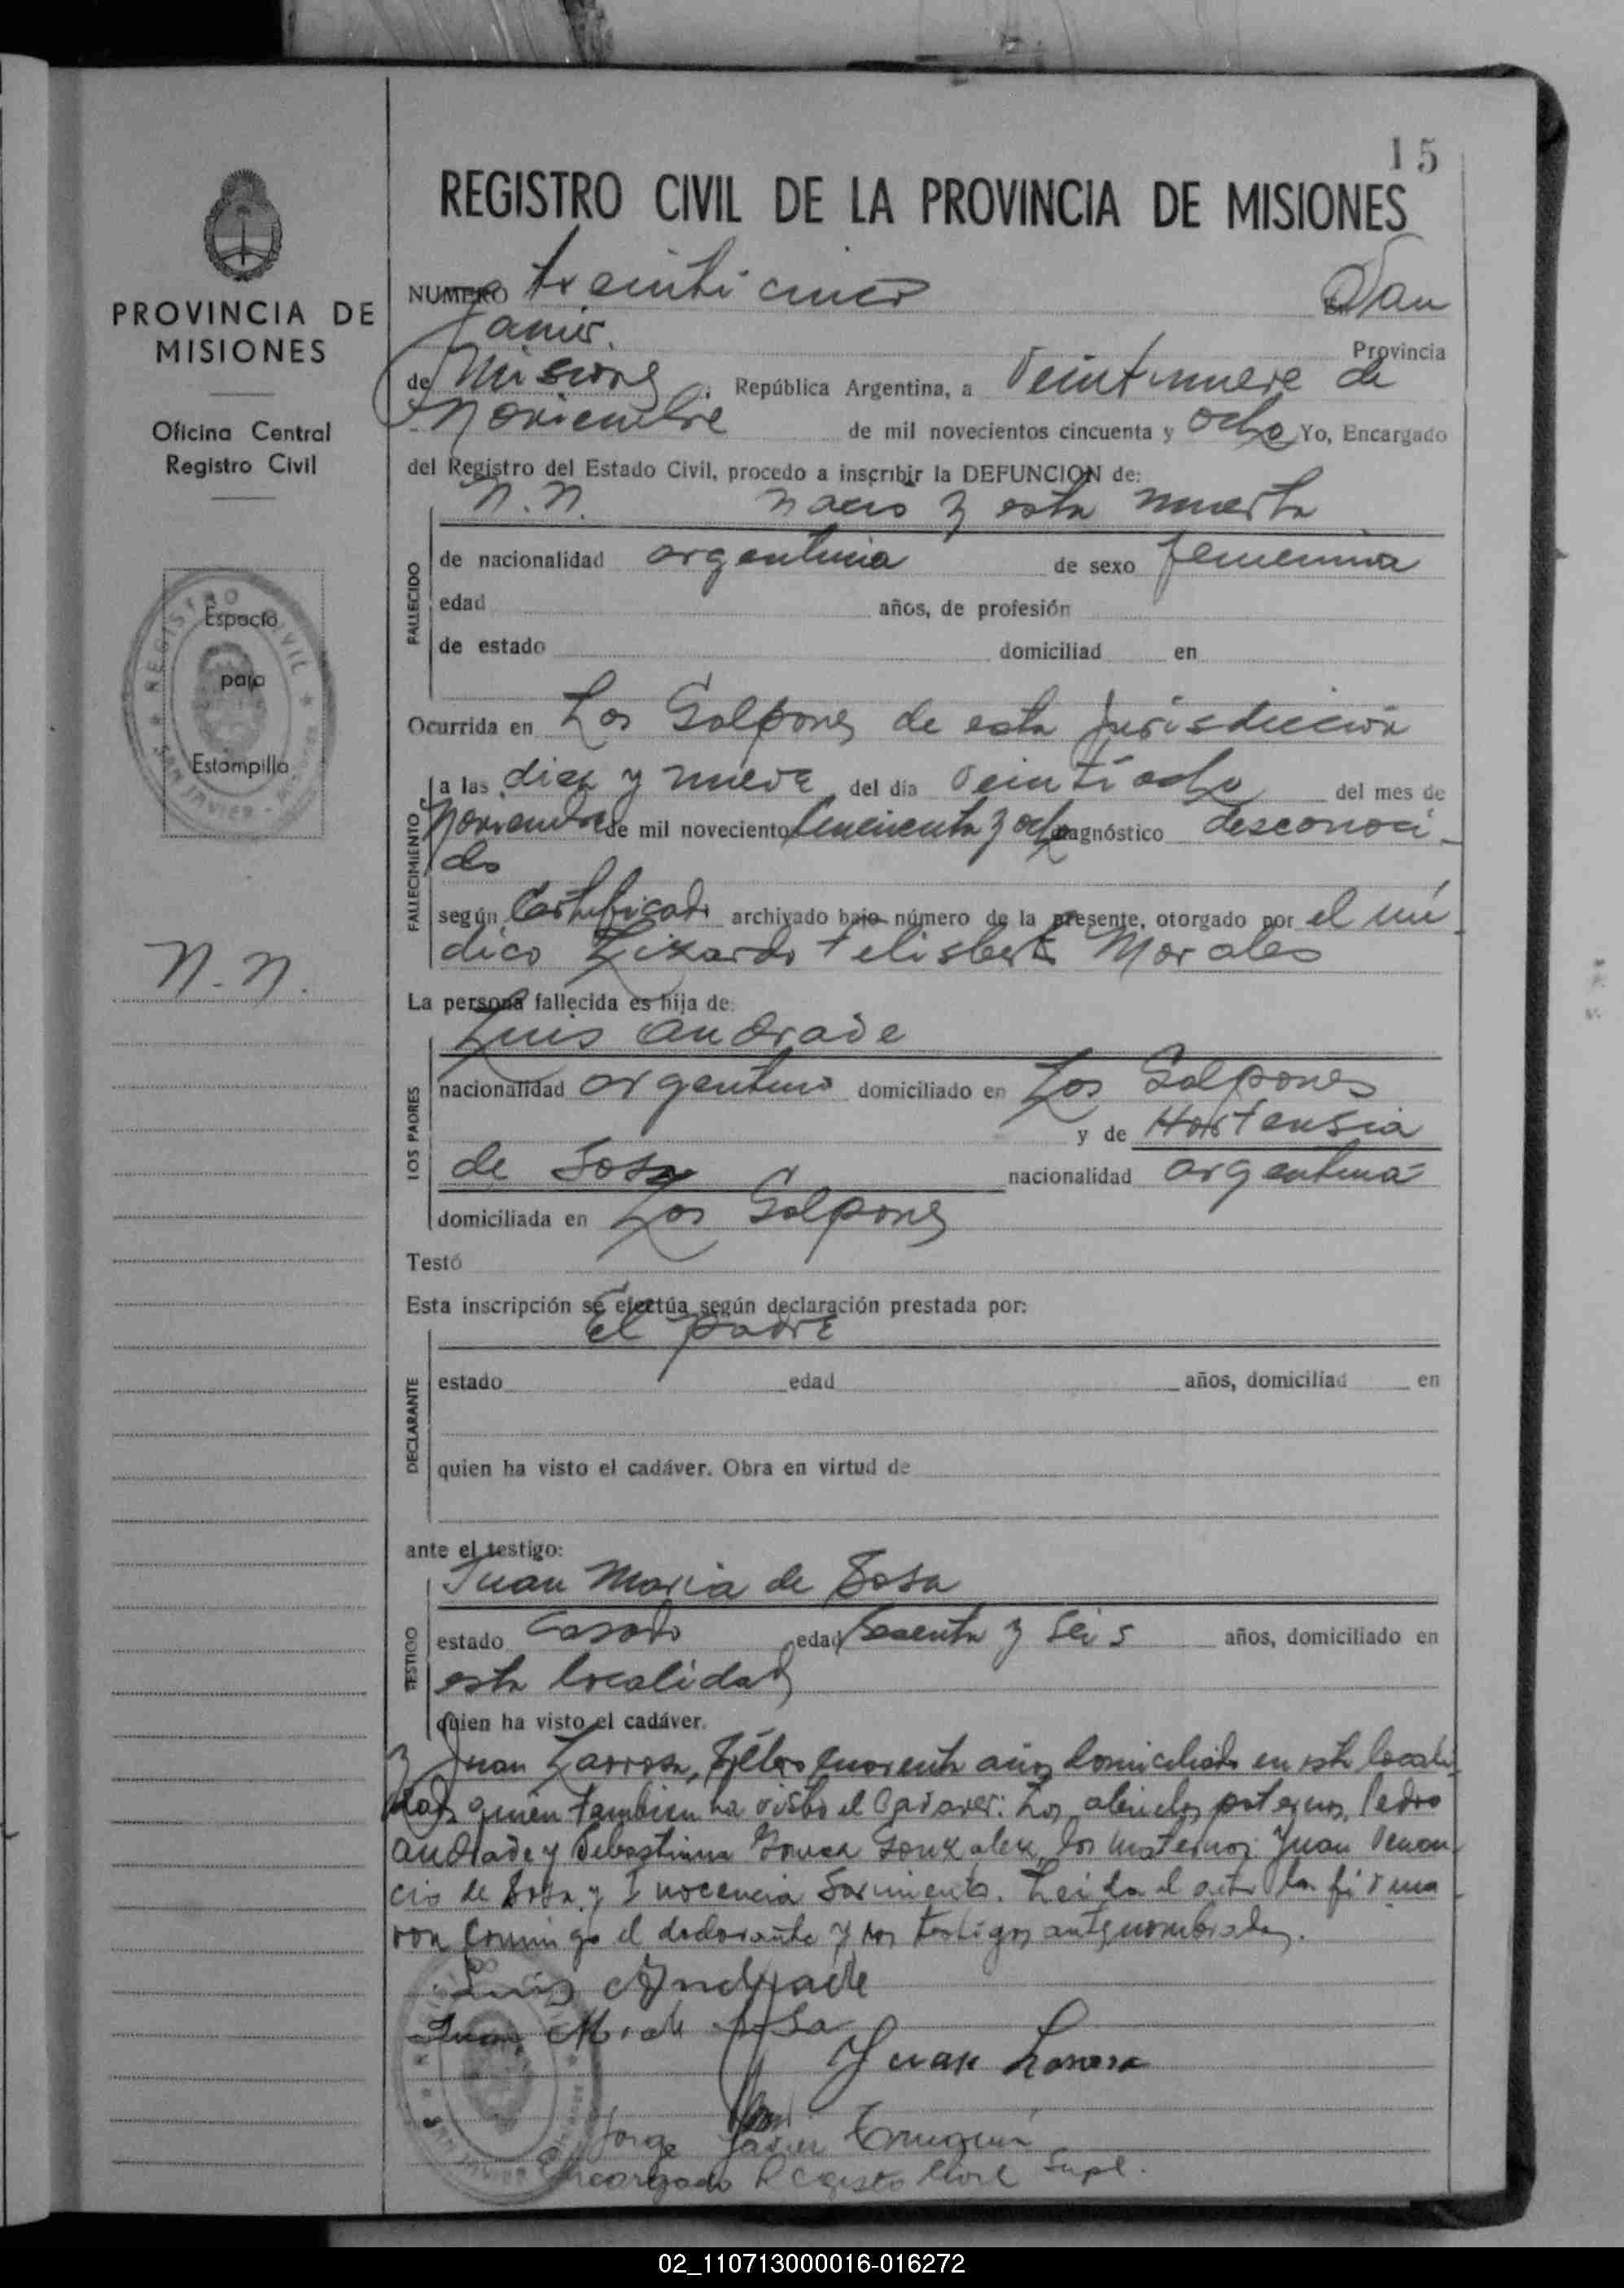 15
REGISTRO CIVIL DE LA PROVINCIA DE MISIONES
PROVINCIA DE
MISIONES
Oficina Central
Registro Civil
Espacio
para
Estampilla
REGISTRO CIVIL
SAN JAVIER
N.N.
NUMERO treinticinco San
Javier. Provincia
de Misiones República Argentina, a Veintinueve de
Noviembre de mil novecientos cincuenta y ocho Yo, Encargado
del Registro del Estado Civil, procedo a inscribir la DEFUNCION de:
N.N. nacio y esta muerta
FALLECIDO
de nacionalidad argentina de sexo femenina
edad años, de profesión
de estado domiciliad en
Ocurrida en Los Galpones de esta Jurisdiccion
FALLECIMIENTO
a las diez y nueve del día veintiocho del mes de
Noviembre de mil noveciento cincuenta y ocho diagnóstico desconoci-
do
según Certificado archivado bajo número de la presente, otorgado por el mé-
dico Lizardo Felisberto Morales
La persona fallecida es hija de:
LOS PADRES
Luis Andrade
nacionalidad argentino domiciliado en Los Galpones
y de Hortensia
de Sosa nacionalidad argentina
domiciliada en Los Galpones
Testó
Esta inscripción se efectúa según declaración prestada por:
DECLARANTE
El padre
estado edad años, domiciliad en
quien ha visto el cadáver. Obra en virtud de
ante el testigo:
TESTIGO
Juan Maria de Sosa
estado Casado edad Sesenta y seis años, domiciliado en
esta localidad
quien ha visto el cadáver.
y Juan Larrosa, cuarenta años domiciliado en esta locali-
dad quien tambien ha visto el Cadaver: Los abuelos paternos, Pedro
Andrade y Sebastiana Gonzalez, los maternos: Juan Venan-
cio de Sosa y Inocencia Sarmiento. Leida el acta la firma
ron conmigo el declarante y los testigos antes nombrados.
Luis Andrade
Juan M. de Sosa
Juan Larrosa
Jorge Javier
Encargado Registro Civil Supl.
02_110713000016-016272